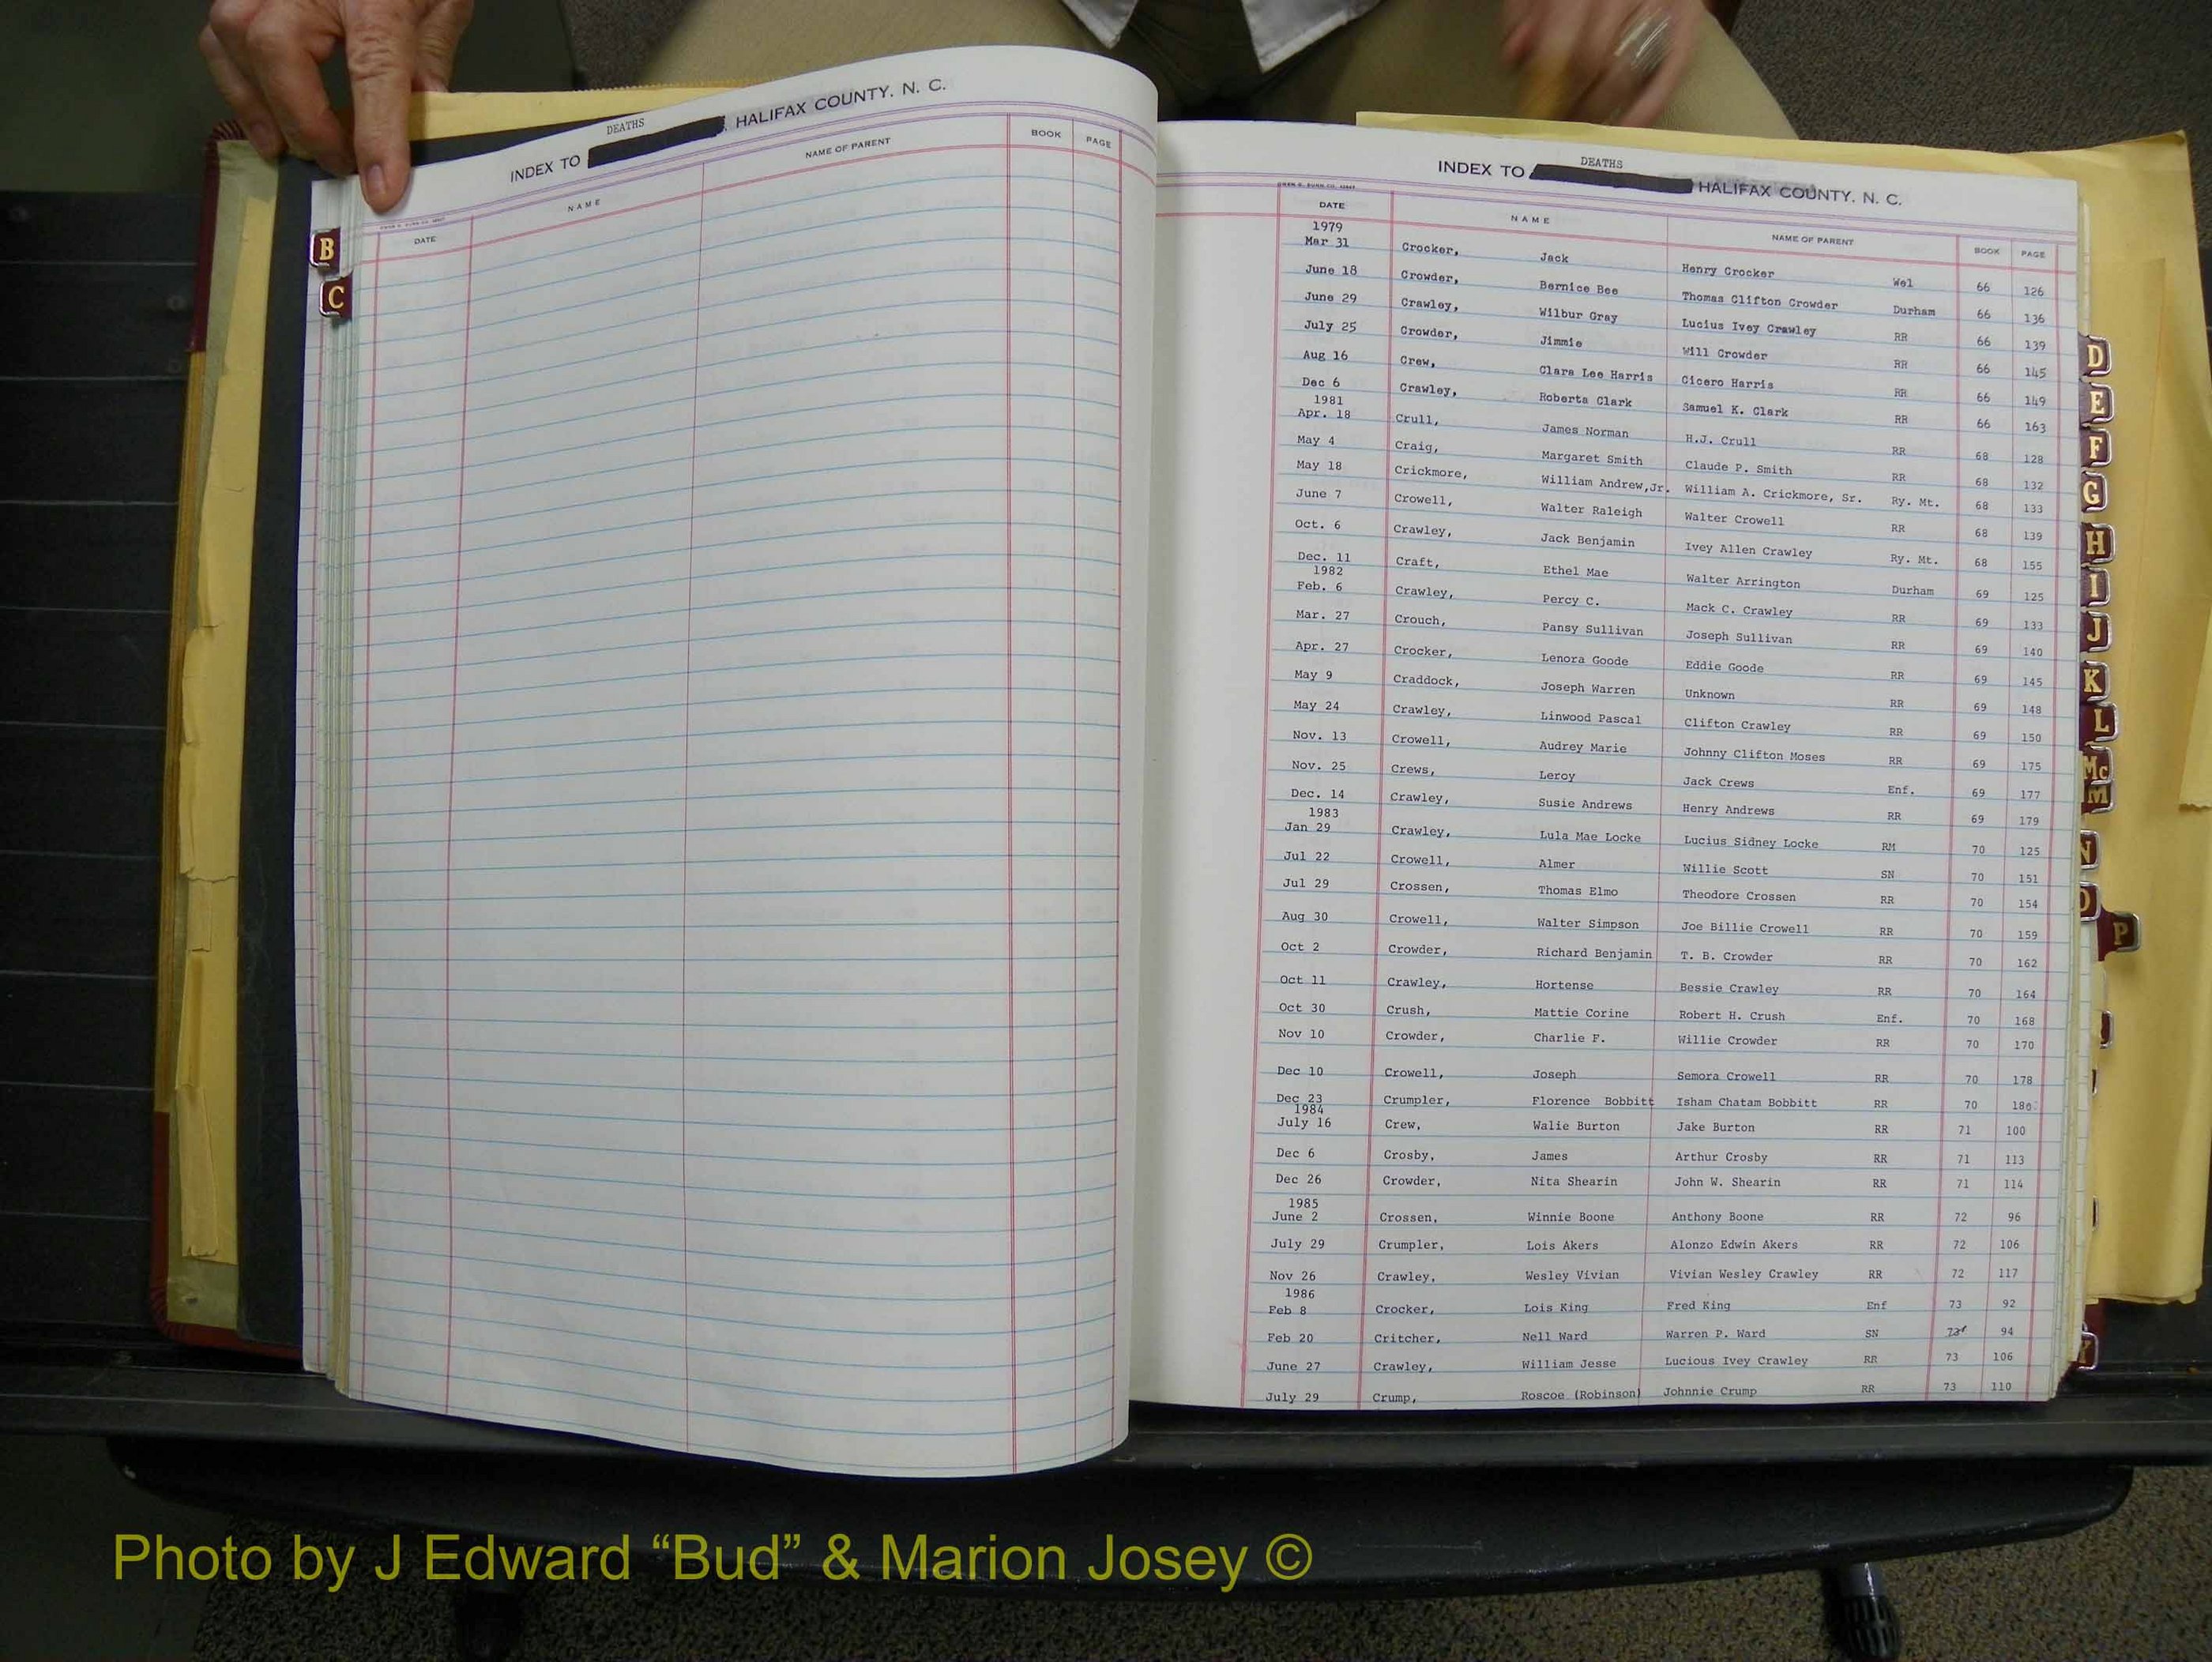 DEATHS
INDEX TO HALIFAX COUNTY, N. C.
OWEN G. DUNN CO.
DATE NAME NAME OF PARENT BOOK PAGE
B
C
DEATHS
INDEX TO HALIFAX COUNTY, N. C.
OWEN G. DUNN CO.
DATE NAME NAME OF PARENT BOOK PAGE
1979
Mar 31 Crocker, Jack Henry Crocker Wel 66 126
June 18 Crowder, Bernice Bee Thomas Clifton Crowder Durham 66 136
June 29 Crawley, Wilbur Gray Lucius Ivey Crawley RR 66 139
July 25 Crowder, Jimmie Will Crowder RR 66 145
Aug 16 Crew, Clara Lee Harris Cicero Harris RR 66 149
Dec 6 Crawley, Roberta Clark Samuel K. Clark RR 66 163
1981
Apr. 18 Crull, James Norman H.J. Crull RR 68 128
May 4 Craig, Margaret Smith Claude P. Smith RR 68 132
May 18 Crickmore, William Andrew,Jr. William A. Crickmore, Sr. Ry. Mt. 68 133
June 7 Crowell, Walter Raleigh Walter Crowell RR 68 139
Oct. 6 Crawley, Jack Benjamin Ivey Allen Crawley Ry. Mt. 68 155
Dec. 11 Craft, Ethel Mae Walter Arrington Durham 69 125
1982
Feb. 6 Crawley, Percy C. Mack C. Crawley RR 69 133
Mar. 27 Crouch, Pansy Sullivan Joseph Sullivan RR 69 140
Apr. 27 Crocker, Lenora Goode Eddie Goode RR 69 145
May 9 Craddock, Joseph Warren Unknown RR 69 148
May 24 Crawley, Linwood Pascal Clifton Crawley RR 69 150
Nov. 13 Crowell, Audrey Marie Johnny Clifton Moses RR 69 175
Nov. 25 Crews, Leroy Jack Crews Enf. 69 177
Dec. 14 Crawley, Susie Andrews Henry Andrews RR 69 179
1983
Jan 29 Crawley, Lula Mae Locke Lucius Sidney Locke RM 70 125
Jul 22 Crowell, Almer Willie Scott SN 70 151
Jul 29 Crossen, Thomas Elmo Theodore Crossen RR 70 154
Aug 30 Crowell, Walter Simpson Joe Billie Crowell RR 70 159
Oct 2 Crowder, Richard Benjamin T. B. Crowder RR 70 162
Oct 11 Crawley, Hortense Bessie Crawley RR 70 164
Oct 30 Crush, Mattie Corine Robert H. Crush Enf. 70 168
Nov 10 Crowder, Charlie F. Willie Crowder RR 70 170
Dec 10 Crowell, Joseph Semora Crowell RR 70 178
Dec 23 Crumpler, Florence Bobbitt Isham Chatam Bobbitt RR 70 180
1984
July 16 Crew, Walie Burton Jake Burton RR 71 100
Dec 6 Crosby, James Arthur Crosby RR 71 113
Dec 26 Crowder, Nita Shearin John W. Shearin RR 71 114
1985
June 2 Crossen, Winnie Boone Anthony Boone RR 72 96
July 29 Crumpler, Lois Akers Alonzo Edwin Akers RR 72 106
Nov 26 Crawley, Wesley Vivian Vivian Wesley Crawley RR 72 117
1986
Feb 8 Crocker, Lois King Fred King Enf 73 92
Feb 20 Critcher, Nell Ward Warren P. Ward SN 73 94
June 27 Crawley, William Jesse Lucious Ivey Crawley RR 73 106
July 29 Crump, Roscoe (Robinson) Johnnie Crump RR 73 110
D
E
F
G
H
I
J
K
L
Mc
M
N
O
P
Photo by J Edward “Bud” & Marion Josey ©